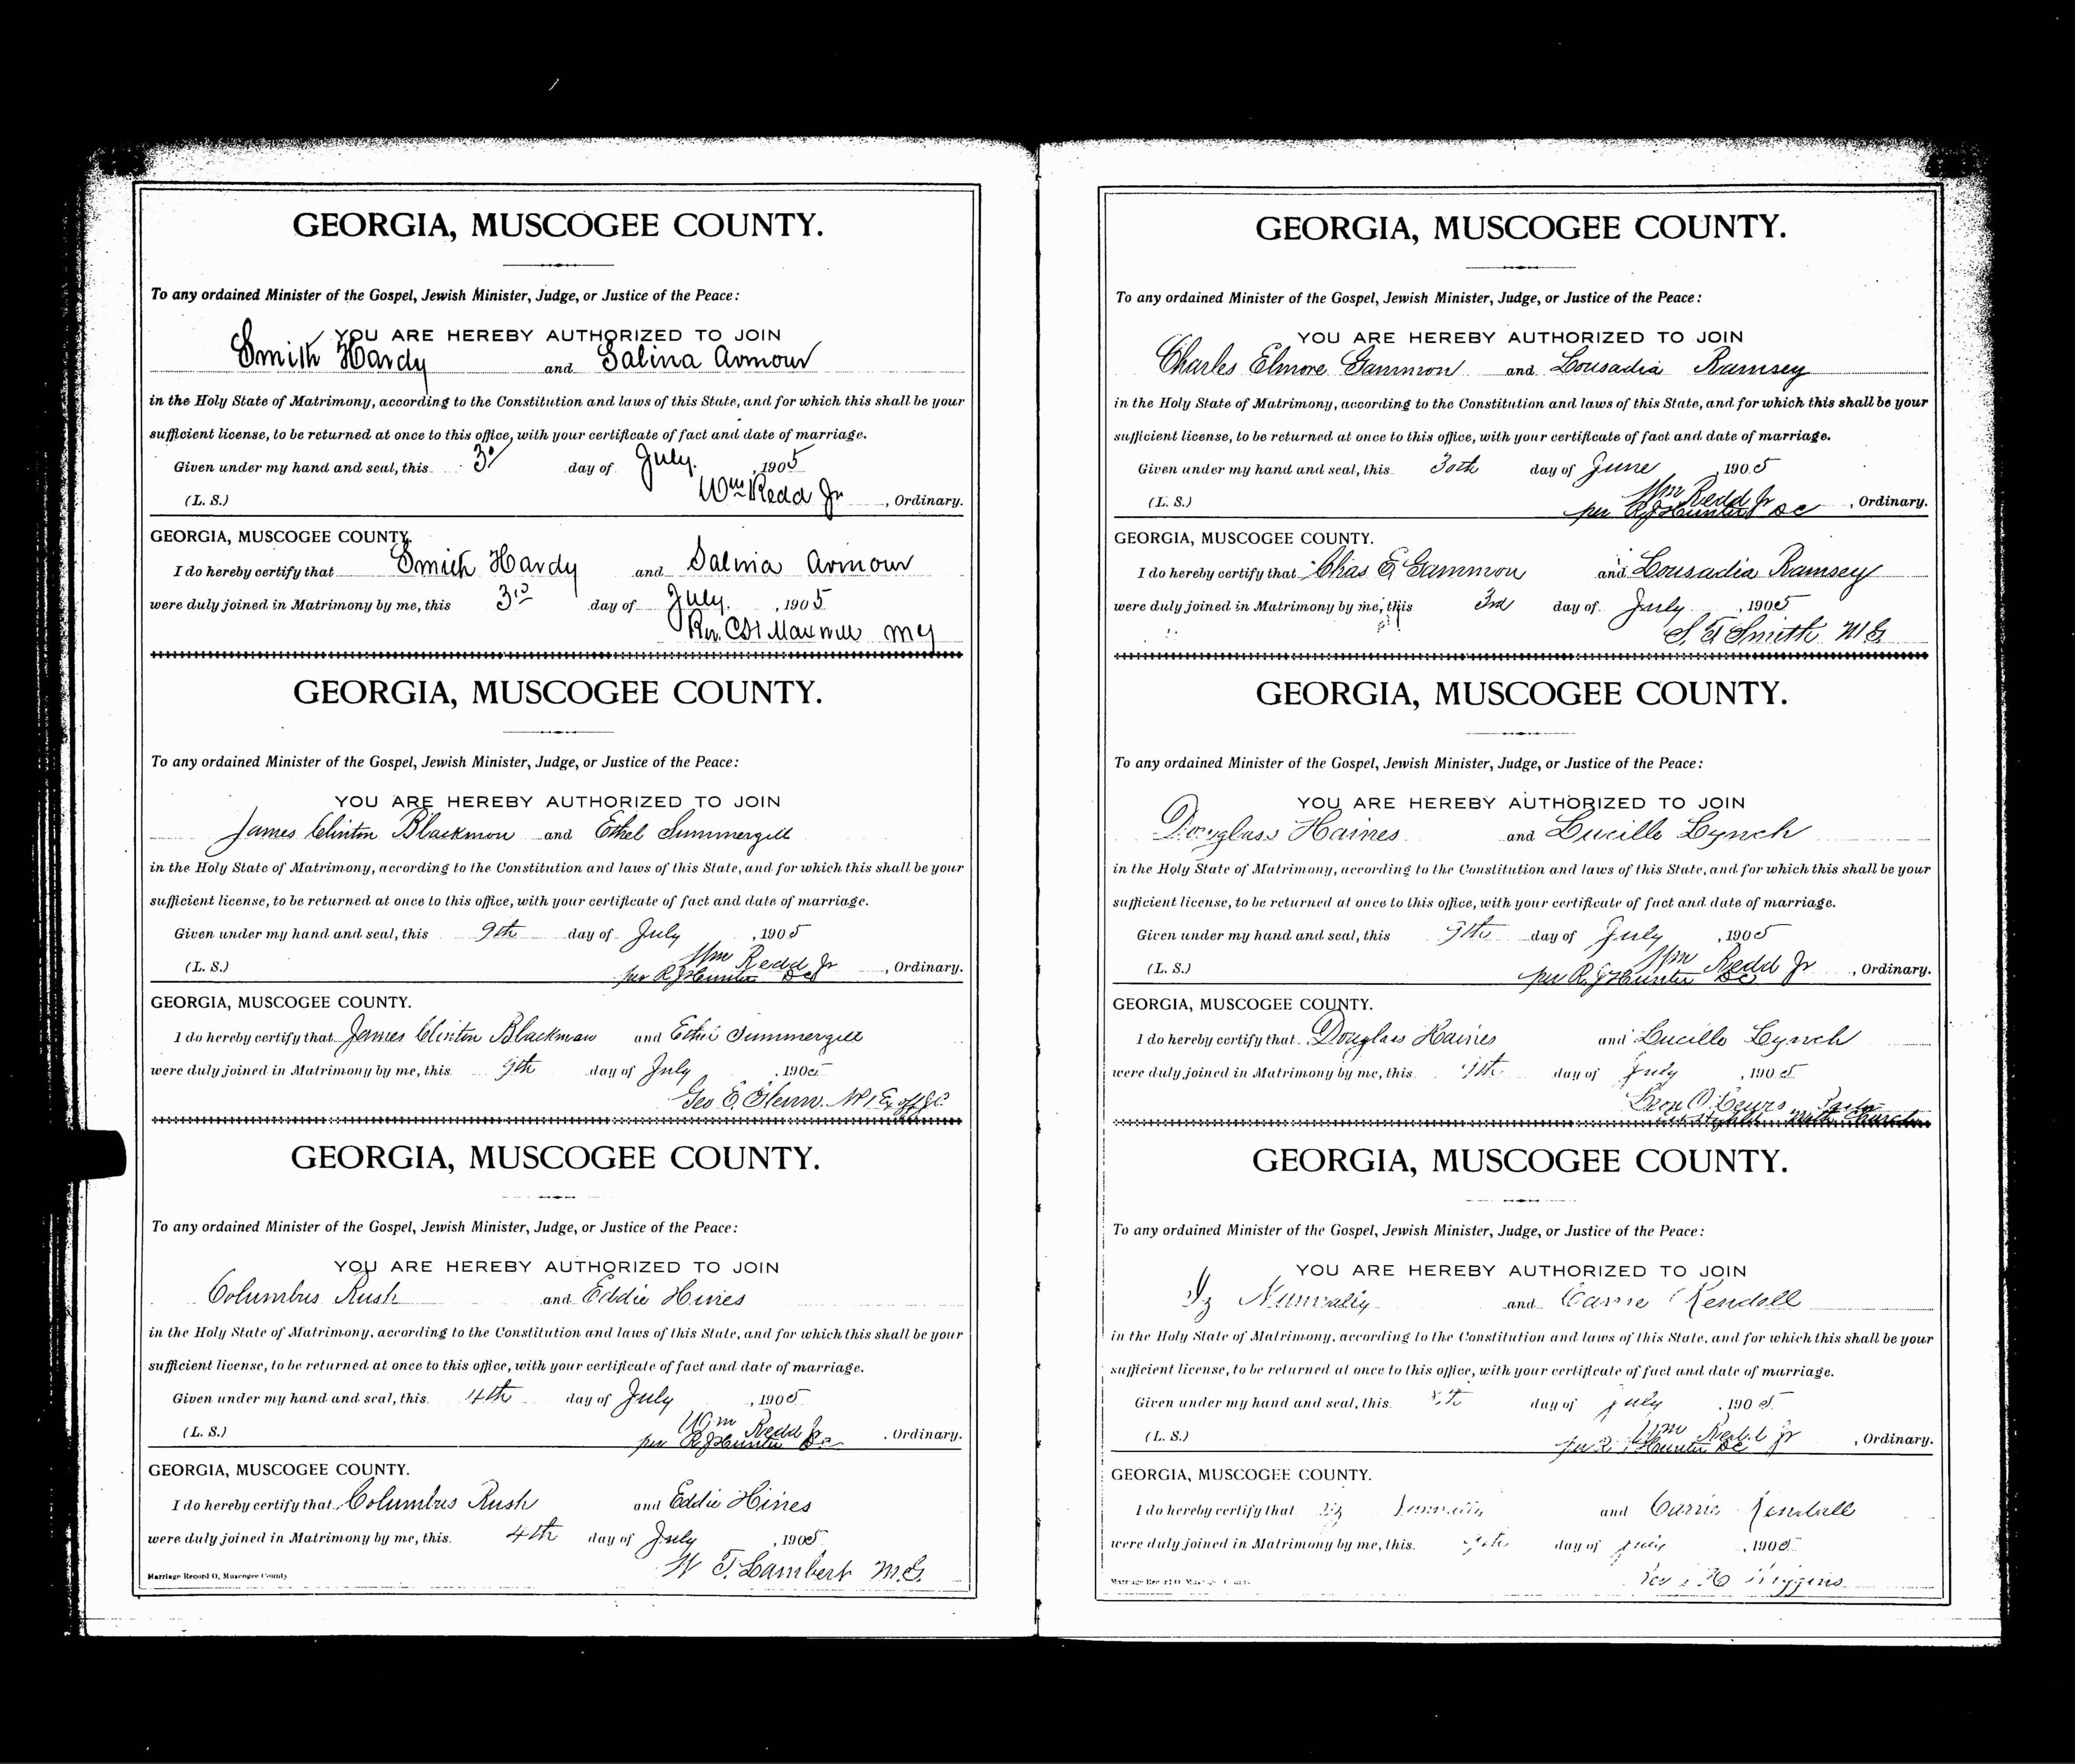 GEORGIA, MUSCOGEE COUNTY.
To any ordained Minister of the Gospel, Jewish Minister, Judge, or Justice of the Peace:
YOU ARE HEREBY AUTHORIZED TO JOIN
Smith Hardy and Salina Armour
in the Holy State of Matrimony, according to the Constitution and laws of this State, and for which this shall be your
sufficient license, to be returned at once to this office, with your certificate of fact and date of marriage.
Given under my hand and seal, this 3 day of July. , 1905
(L. S.) Wm Redd Jr , Ordinary.
GEORGIA, MUSCOGEE COUNTY.
I do hereby certify that Smith Hardy and Salina Armour
were duly joined in Matrimony by me, this 3rd day of July. , 1905
Rev. MG
GEORGIA, MUSCOGEE COUNTY.
To any ordained Minister of the Gospel, Jewish Minister, Judge, or Justice of the Peace:
YOU ARE HEREBY AUTHORIZED TO JOIN
James Clinton Blackmon and Ethel Summergill
in the Holy State of Matrimony, according to the Constitution and laws of this State, and for which this shall be your
sufficient license, to be returned at once to this office, with your certificate of fact and date of marriage.
Given under my hand and seal, this 9th day of July , 1905
Wm Redd Jr
(L. S.) per R J Hunter DC , Ordinary.
GEORGIA, MUSCOGEE COUNTY.
I do hereby certify that James Clinton Blackmon and Ethel Summergill
were duly joined in Matrimony by me, this 9th day of July , 1905
Geo E. Glenn.
GEORGIA, MUSCOGEE COUNTY.
To any ordained Minister of the Gospel, Jewish Minister, Judge, or Justice of the Peace:
YOU ARE HEREBY AUTHORIZED TO JOIN
Columbus Rush and Eddie Hines
in the Holy State of Matrimony, according to the Constitution and laws of this State, and for which this shall be your
sufficient license, to be returned at once to this office, with your certificate of fact and date of marriage.
Given under my hand and seal, this 4th day of July , 1905
Wm Redd Jr
(L. S.) per R J Hunter DC , Ordinary.
GEORGIA, MUSCOGEE COUNTY.
I do hereby certify that Columbus Rush and Eddie Hines
were duly joined in Matrimony by me, this 4th day of July , 1905
W T. Lambert M.G.
Marriage Record O, Muscogee County
GEORGIA, MUSCOGEE COUNTY.
To any ordained Minister of the Gospel, Jewish Minister, Judge, or Justice of the Peace:
YOU ARE HEREBY AUTHORIZED TO JOIN
Charles Elmore Gammon and Lousadia Ramsey
in the Holy State of Matrimony, according to the Constitution and laws of this State, and for which this shall be your
sufficient license, to be returned at once to this office, with your certificate of fact and date of marriage.
Given under my hand and seal, this 30th day of June , 1905
Wm Redd Jr
(L. S.) per R J Hunter DC , Ordinary.
GEORGIA, MUSCOGEE COUNTY.
I do hereby certify that Chas E Gammon and Lousadia Ramsey
were duly joined in Matrimony by me, this 3rd day of July , 1905
Smith M G
GEORGIA, MUSCOGEE COUNTY.
To any ordained Minister of the Gospel, Jewish Minister, Judge, or Justice of the Peace:
YOU ARE HEREBY AUTHORIZED TO JOIN
Douglass Haines and Lucille Lynch
in the Holy State of Matrimony, according to the Constitution and laws of this State, and for which this shall be your
sufficient license, to be returned at once to this office, with your certificate of fact and date of marriage.
Given under my hand and seal, this day of July , 1905
Wm Redd Jr
(L. S.) per R J Hunter DC , Ordinary.
GEORGIA, MUSCOGEE COUNTY.
I do hereby certify that Douglass Haines and Lucille Lynch
were duly joined in Matrimony by me, this day of July , 1905
Church
GEORGIA, MUSCOGEE COUNTY.
To any ordained Minister of the Gospel, Jewish Minister, Judge, or Justice of the Peace:
YOU ARE HEREBY AUTHORIZED TO JOIN
Iz Nunnally and Carrie Kendall
in the Holy State of Matrimony, according to the Constitution and laws of this State, and for which this shall be your
sufficient license, to be returned at once to this office, with your certificate of fact and date of marriage.
Given under my hand and seal, this day of July , 1905
Wm Redd Jr
(L. S.) per R J Hunter DC , Ordinary.
GEORGIA, MUSCOGEE COUNTY.
I do hereby certify that Iz Nunnally and Carrie Kendall
were duly joined in Matrimony by me, this day of July , 1905
Marriage Record O, Muscogee County